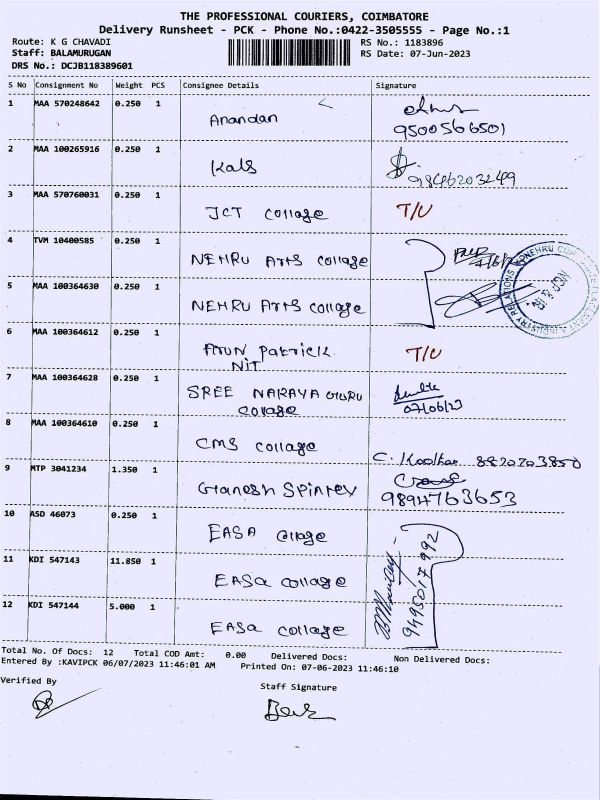 THE PROFESSIONAL COURIERS, COIMBATORE
Delivery Runsheet - PCK - Phone No.:0422-3505555 - Page No.:1
Route: K G CHAVADI RS No.: 1183896
Staff: BALAMURUGAN RS Date: 07-Jun-2023
DRS No.: DCJB118389601
S No Consignment No Weight PCS Consignee Details Signature
1 MAA 570248642 0.250 1 Anandan
9500566501
2 MAA 100265916 0.250 1 Kals
9846203249
3 MAA 570760031 0.250 1 JCT Collage T/U
4 TVM 10400585 0.250 1 NEHRU Arts collage
5 MAA 100364630 0.250 1 NEHRU Arts collage
6 MAA 100364612 0.250 1 Arun Patrick T/U
NIT
7 MAA 100364628 0.250 1 SREE NARAYA GURU
collage 07/06/23
8 MAA 100364610 0.250 1 CMS collage
9 MTP 3041234 1.350 1 Ganesh Spintex 9894763653
10 ASD 46073 0.250 1 EASA collage
11 KDI 547143 11.850 1 EASa collage
12 KDI 547144 5.000 1 EASa collage
9495017992
Total No. Of Docs: 12 Total COD Amt: 0.00 Delivered Docs: Non Delivered Docs:
Entered By :KAVIPCK 06/07/2023 11:46:01 AM Printed On: 07-06-2023 11:46:10
Verified By
Staff Signature